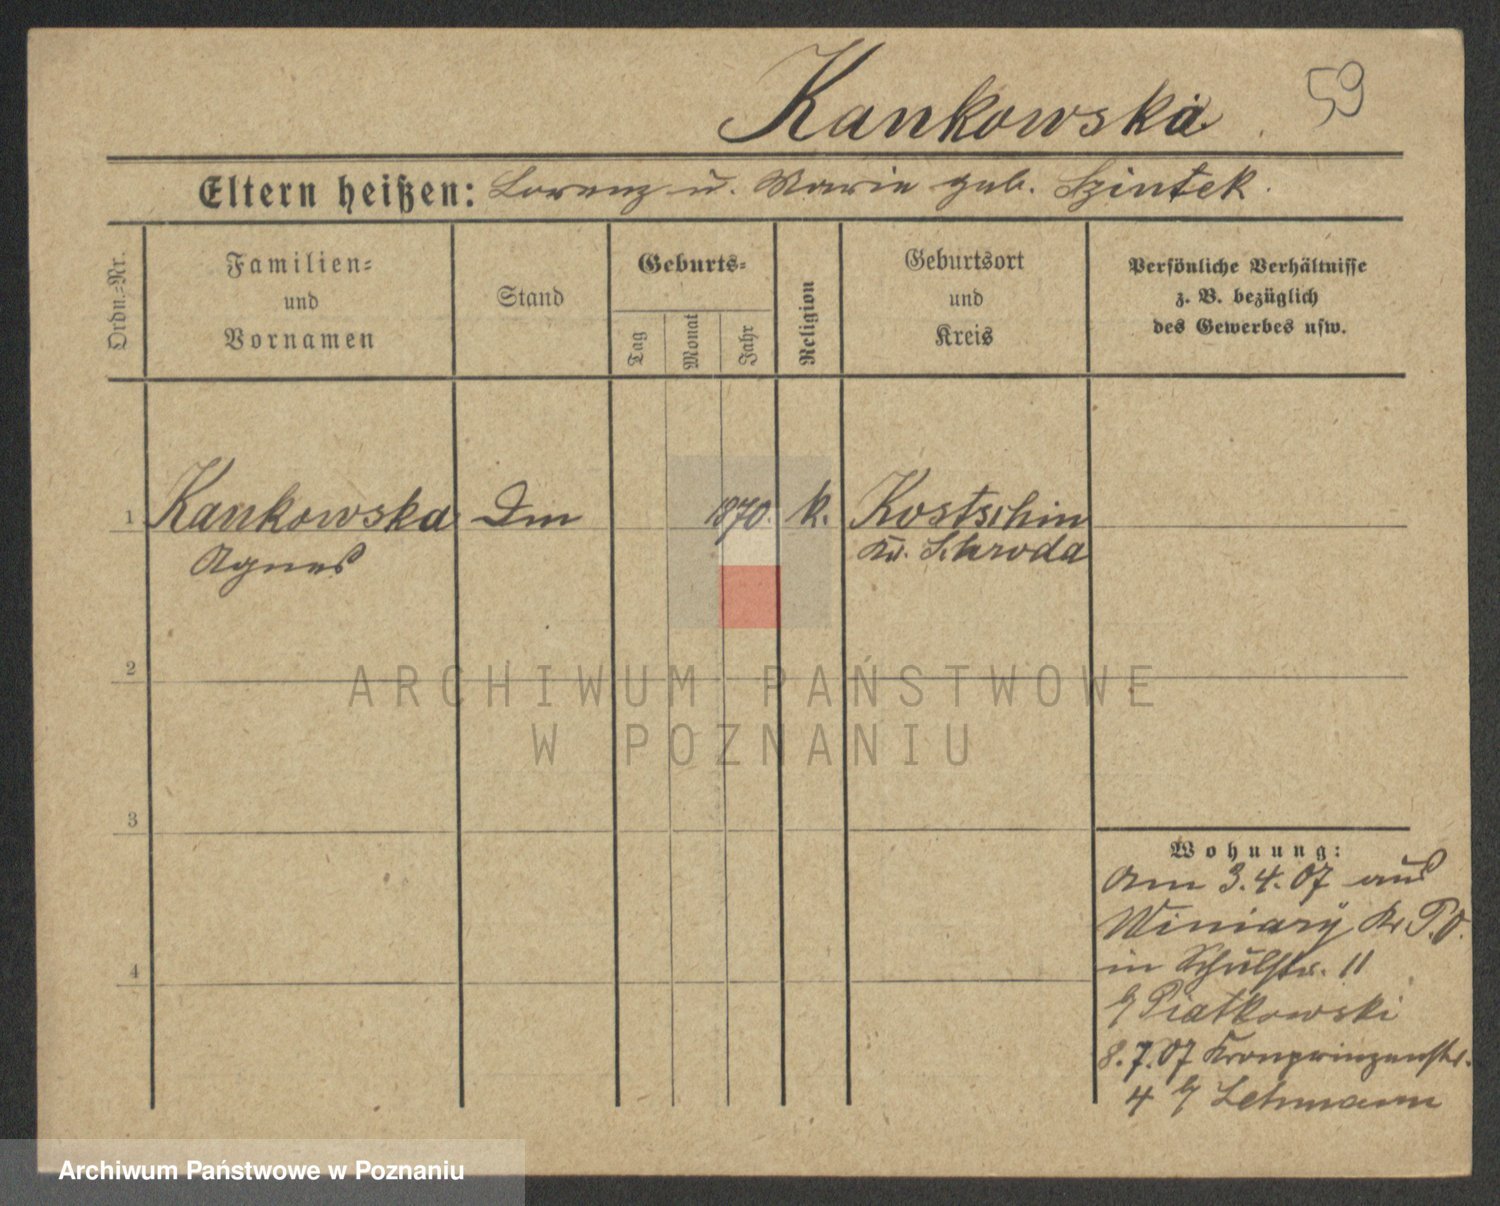 Kankowska 59
Eltern heißen: Lorenz u. Marie geb. Szintek.
Ordn.-Nr.
Familien-
und
Vornamen
Stand
Geburts-
Tag
Monat
Jahr
Religion
Geburtsort
und
Kreis
Persönliche Verhältnisse
z. B. bezüglich
des Gewerbes usw.
1 Kankowska 1870. k. Kostschin
Agnes Kr. Schroda
2
3
4
Wohnung:
Am 3.4.07 aus
Winiary Kr P.O.
in Schulstr. 11
b/ Piatkowski
8.7.07 Kronprinzenstr.
4 b/ Lehmann
ARCHIWUM PAŃSTWOWE
W POZNANIU
Archiwum Państwowe w Poznaniu